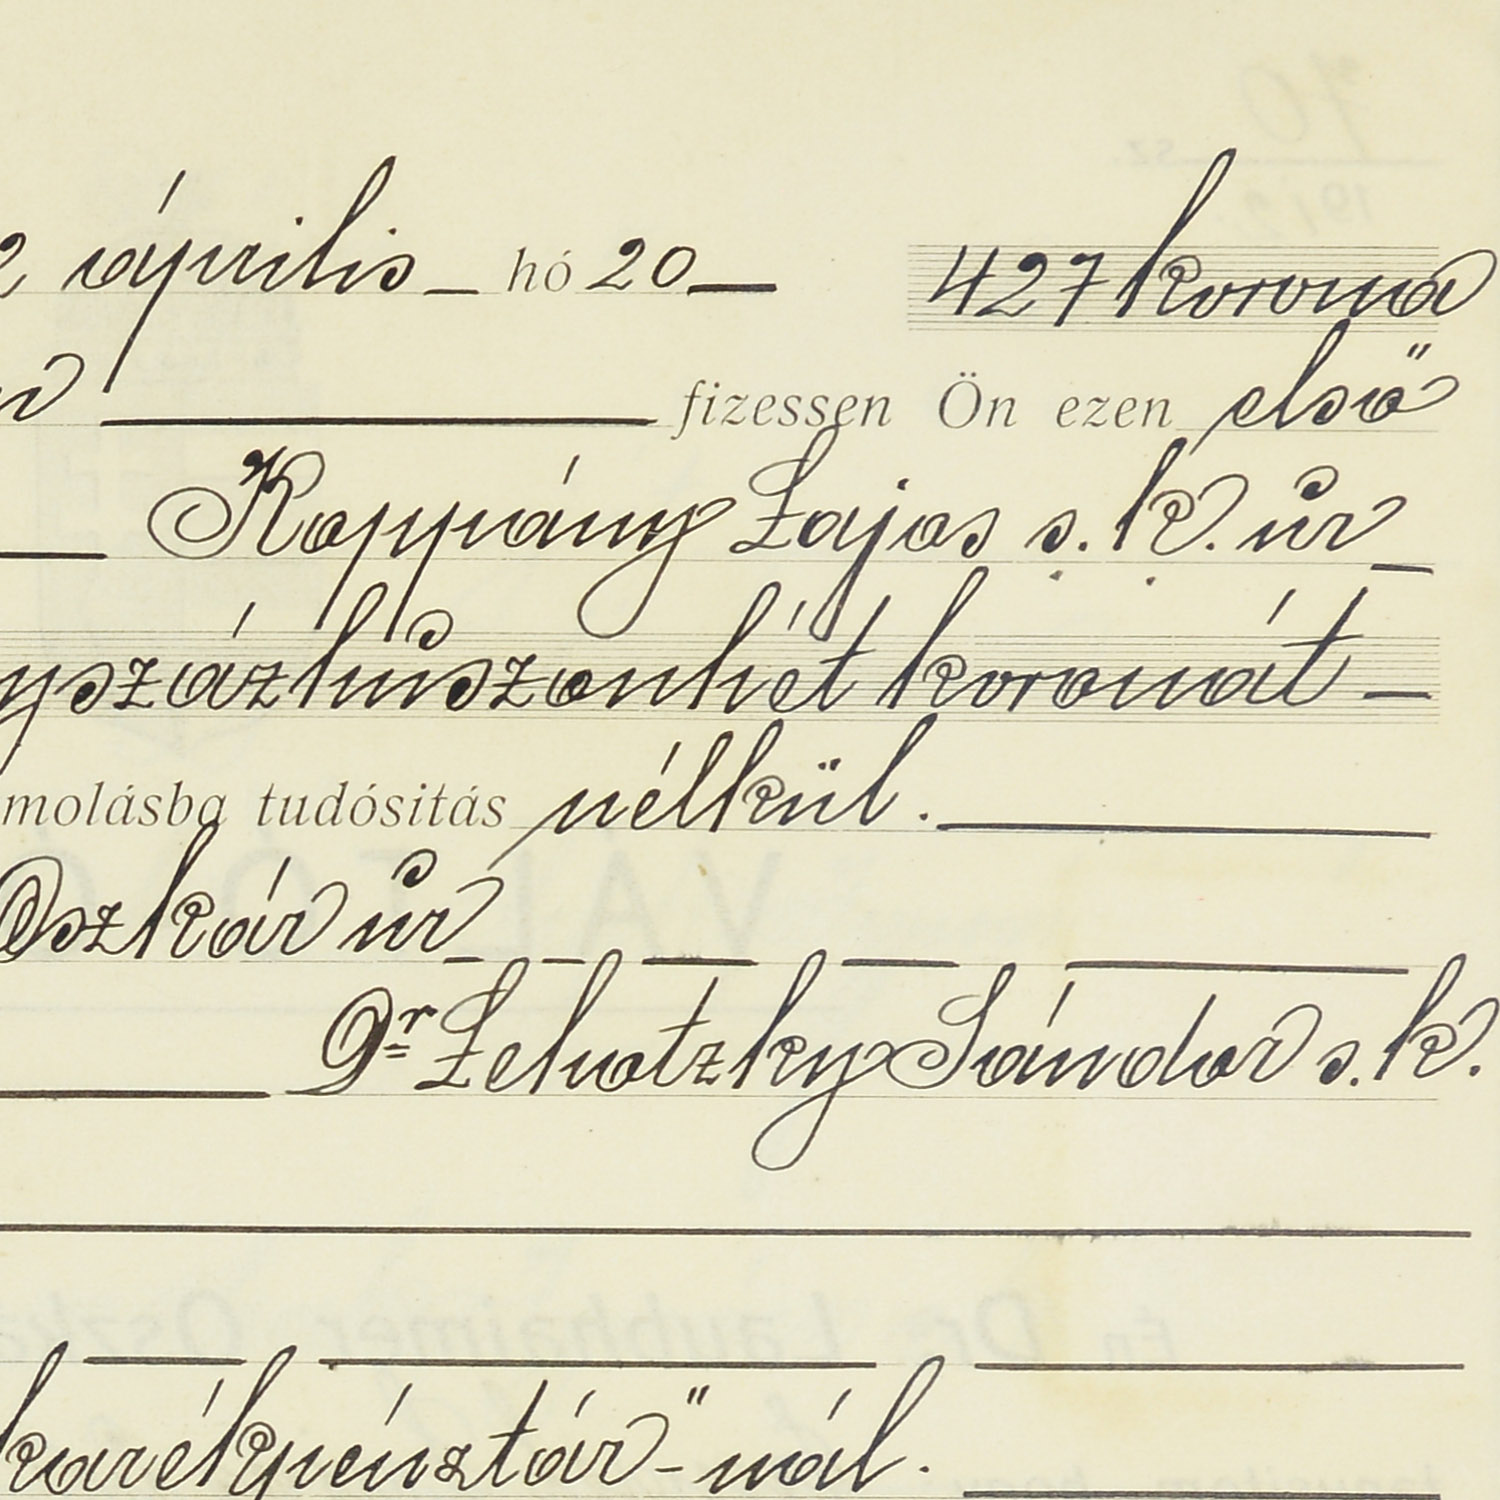 2 április hó 20 427 korona
fizessen Ön ezen első
Koppány Lajos s. k. úr
yszázhúszonhét koronát
molásba tudósitás nélkül.
Oszkár úr
Dr Lehotzky Sándor s. k.
karékpénztár"-nál.